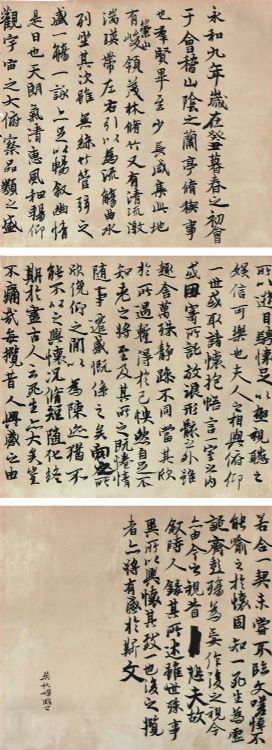 永和九年歲在癸丑暮春之初會
于會稽山陰之蘭亭脩稧事
也羣賢畢至少長咸集此地
崇山
有峻領茂林脩竹又有清流激
湍暎帶左右引以為流觴曲水
列坐其次雖無絲竹管弦之
盛一觴一詠亦足以暢敘幽情
是日也天朗氣清惠風和暢仰
觀宇宙之大俯察品類之盛
所以遊目騁懷足以極視聽之
娛信可樂也夫人之相與俯仰
一世或取諸懷抱悟言一室之內
或因寄所託放浪形骸之外雖
趣舍萬殊靜躁不同當其欣
於所遇蹔得於己怏然自足不
知老之將至及其所之既惓情
隨事遷感慨係之矣向之所
欣俛仰之間以為陳迹猶不
能不以之興懷況脩短隨化終
期於盡古人云死生亦大矣豈
不痛哉每攬昔人興感之由
若合一契未嘗不臨文嗟悼不
能喻之於懷固知一死生為虛
誕齊彭殤為妄作後之視今
亦由今之視昔悲夫故
敘時人錄其所述雖世殊事
異所以興懷其致一也後之攬
者亦將有感於斯文